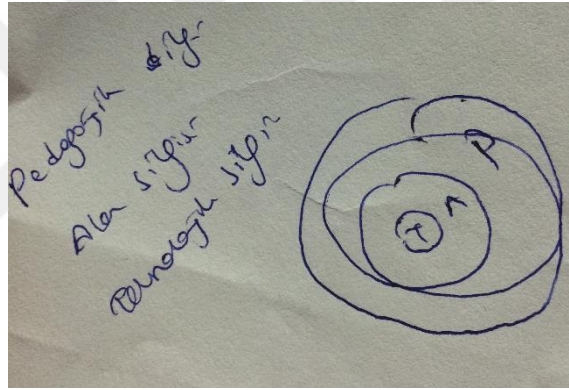 Pedagojik bilgi
Alan bilgisi
Teknolojik bilgi
P
A
T